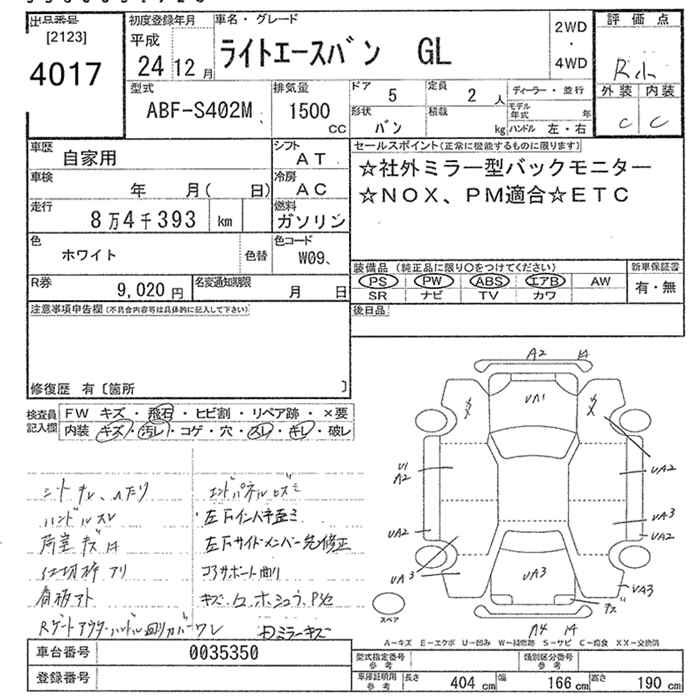 出品番号
[2123]
4017
初度登録年月
平成
24 12 月
車名・グレード
ライトエースバン GL
2WD
・
4WD
評価点
R小
外装 内装
C C
型式
ABF-S402M
排気量
1500
CC
ドア 5
定員 2 人
ディーラー・並行
形状
バン
積載
kg
モデル年式 年
ハンドル 左・右
車歴
自家用
シフト
AT
車検
年 月( 日)
冷房
AC
走行
8万4千393 km
燃料
ガソリン
色
ホワイト
色替
色コード
W09、
R券
9,020 円
名変通知期限
月 日
セールスポイント(正常に機能するものに限ります)
☆社外ミラー型バックモニター
☆NOX、PM適合☆ETC
装備品 (純正品に限り○をつけてください)
新車保証書
PS PW ABS エアB AW
SR ナビ TV カワ
有・無
後日品
注意事項申告欄(不具合内容等は具体的に記入して下さい)
修復歴 有〔箇所 〕
検査員
記入欄
FW キズ・飛石・ヒビ割・リペア跡・×要
内装 キズ・汚レ・コゲ・穴・スレ・キレ・破レ
シートチレ、ヘタリ
ハンドルスレ
荷室キズ
仕切枠アリ
看板アト
Rゲートアウターハンドル
カバーワレ
エンドパネルヒズミ
左Fインハネ歪ミ
左Fサイドメンバー先修正
コアサポート曲り
ミラーキズ
A2
UA1
U1
A2
UA2
UA2
UA3
UA2
UA3
UA3
UA3
キズ
A4
スペア
A-キズ E-エクボ U-凹み W-補修跡 S-サビ C-腐食 XX-交換済
車台番号
0035350
登録番号
型式指定番号
参考
類別区分番号
参考
車庫証明用
参考
長さ 404 cm 幅 166 cm 高さ 190 cm